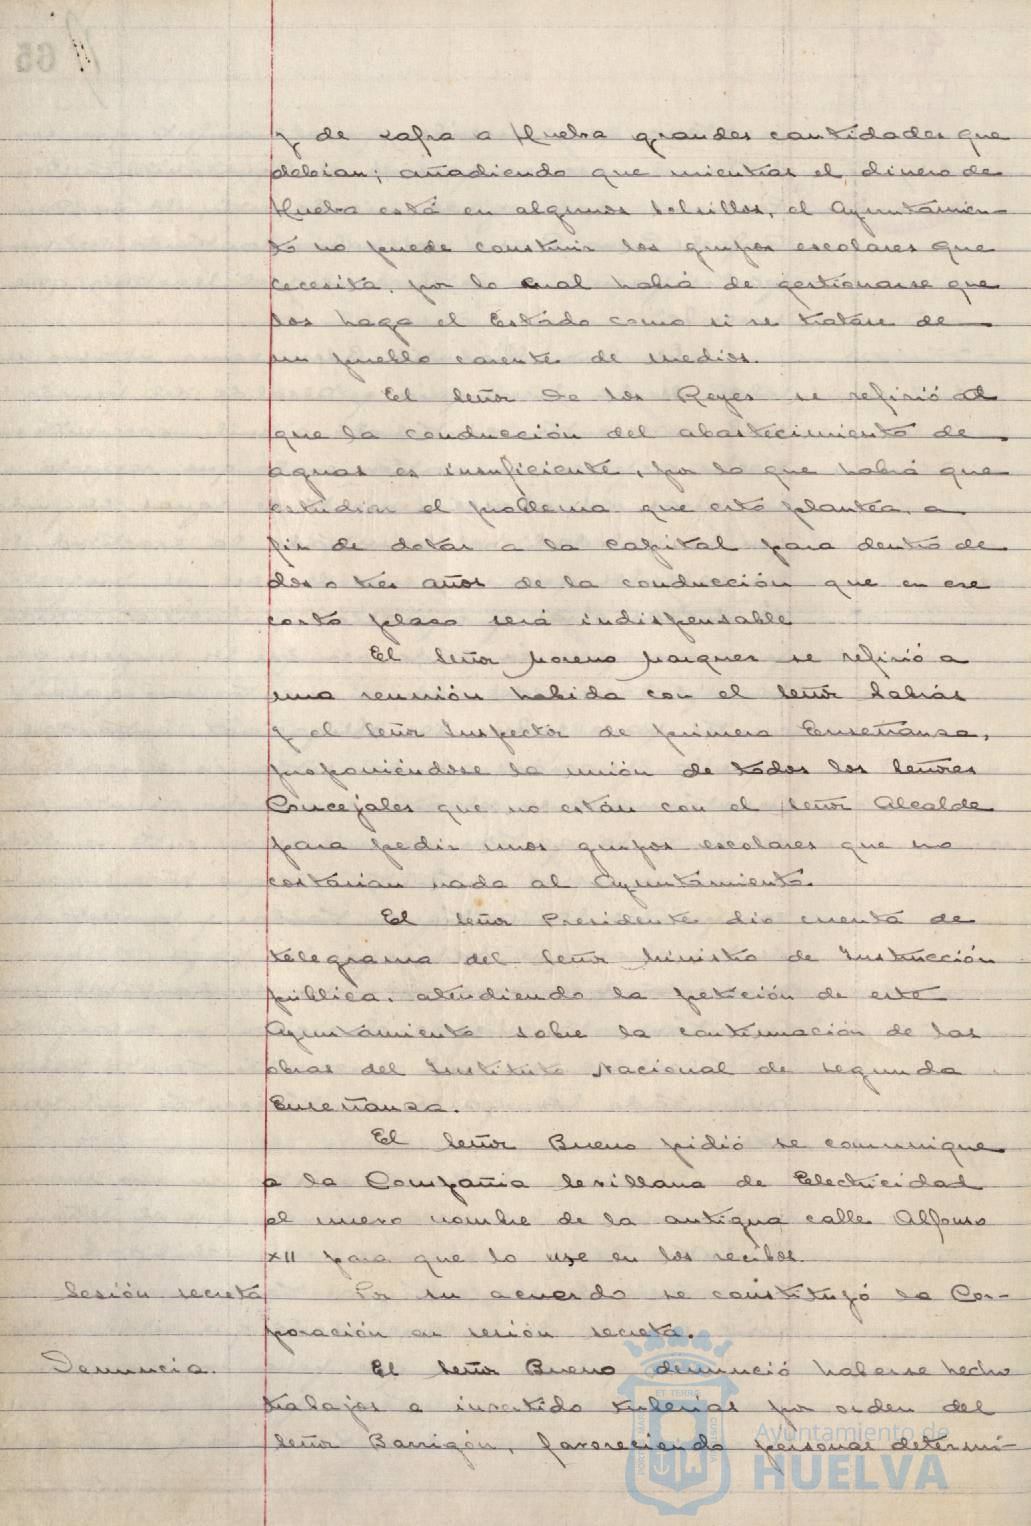 y de Zafra a Huelva grandes cantidades que
debian; añadiendo que mientras el dinero de
Huelva está en algunos bolsillos, el Ayuntamien-
to no puede construir los grupos escolares que
necesita, por lo cual habrá de gestionarse que
los haga el Estado como si se tratase de
un pueblo carente de medios.
El Señor De los Reyes se refirió al
que la conducción del abastecimiento de
aguas es insuficiente, por lo que habrá que
estudiar el problema que esto plantea, a
fin de dotar a la capital para dentro de
dos o tres años de la conducción que en ese
corto plazo será indispensable
El Señor Moreno Marquez se refirió a
una reunión habida con el Señor Sabrás
y el Señor Inspector de primera Enseñanza,
proponiéndose la unión de todos los Señores
Concejales que no están con el Señor Alcalde
para pedir unos grupos escolares que no
costarian nada al Ayuntamiento.
El Señor Presidente dio cuenta de
telegrama del Señor Ministro de Instrucción
pública, atendiendo la petición de este
Ayuntamiento sobre la continuación de las
obras del Instituto Nacional de segunda
Enseñanza.
El Señor Bueno pidió se comunique
a la Compañia Sevillana de Electricidad
el nuevo nombre de la antigua calle Alfonso
XII para que lo use en los recibos.
Sesión secreta Por su acuerdo se constituyó la Cor-
poración en sesión secreta.
Denuncia. El Señor Bueno denunció haberse hecho
trabajos e invertido tuberias por orden del
Señor Barrigón, favoreciendo personas determi-
Ayuntamiento de
HUELVA